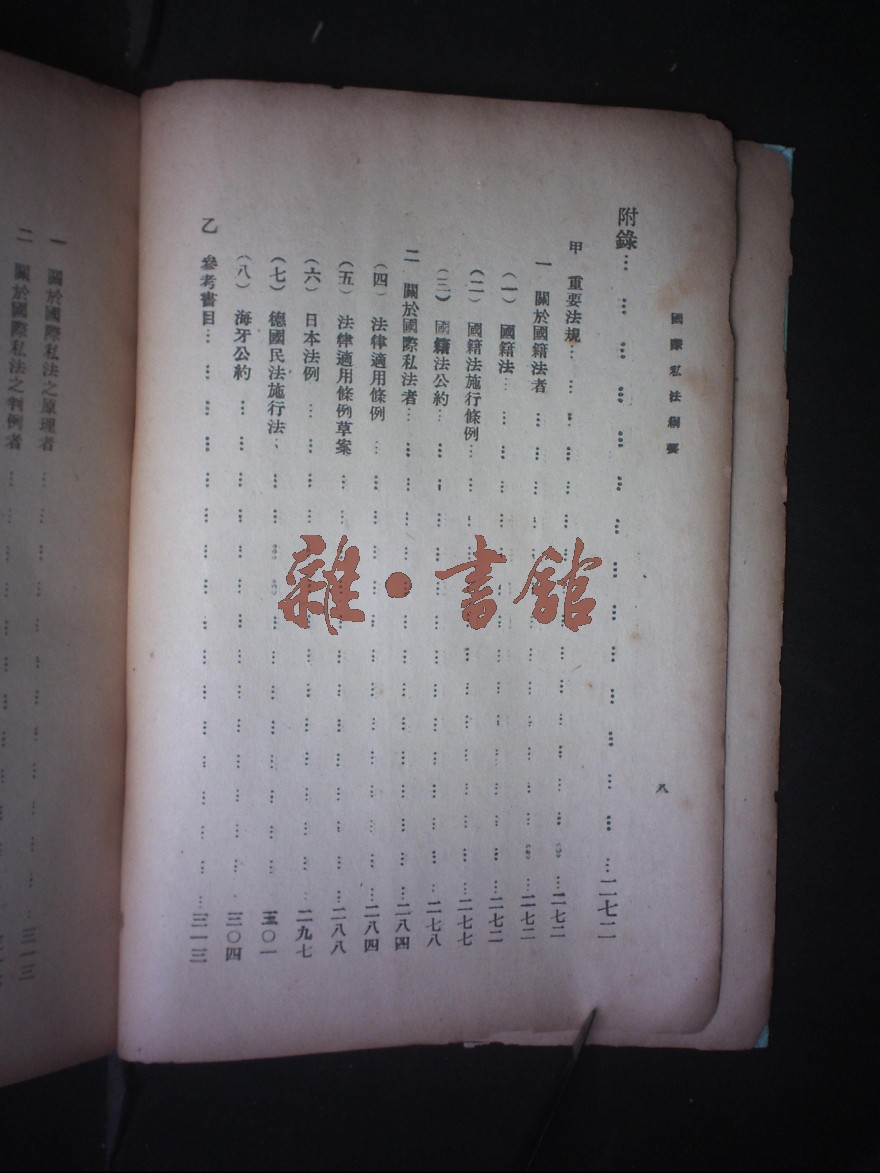 國際私法綱要
八
附錄……二七二
甲 重要法規……二七二
一 關於國籍法者……二七二
(一) 國籍法……二七二
(二) 國籍法施行條例……二七七
(三) 國籍法公約……二七八
二 關於國際私法者……二八四
(四) 法律適用條例……二八四
(五) 法律適用條例草案……二八八
(六) 日本法例……二九七
(七) 德國民法施行法……三〇一
(八) 海牙公約……三〇四
乙 參考書目……三一三
一 關於國際私法之原理者……三一三
二 關於國際私法之判例者
雜·書館